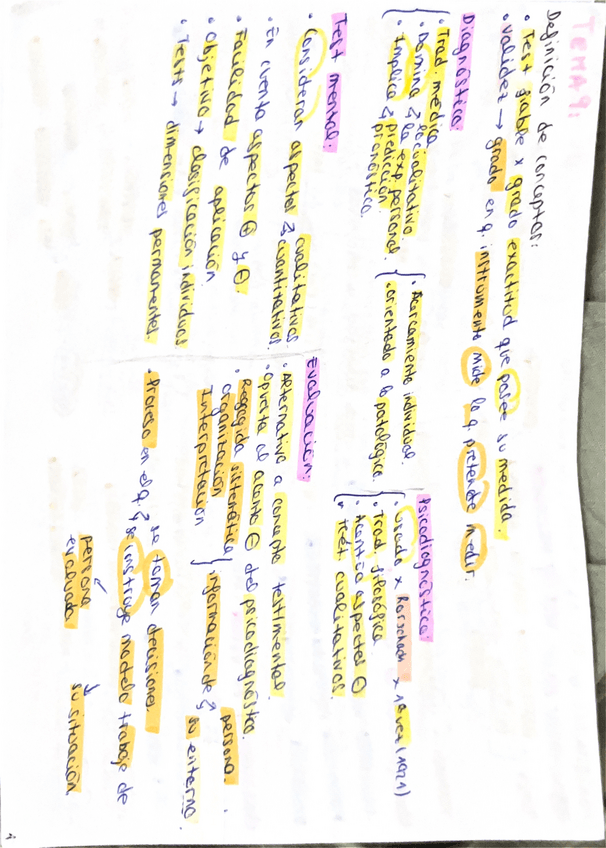 TEMA 9:
Definición de conceptos:
• Test fiable x grado exactitud que posee su medida.
• Validez → grado en q. instrumento mide lo q. pretende medir.
Diagnóstico:
• Trad. médica
• Domina lo cualitativo
la exp. personal.
• Implica predicción
pronóstico.
• Acercamiento individual.
• orientado a lo patológico.
Psicodiagnóstico:
• Usado x Rorschach x 1ª vez (1921)
• Trad. filosófica
• Acentúa aspectos ⊖
• Trat. cualitativos.
Test mental:
• Consideran aspectos cualitativos
cuantitativos.
• En cuenta aspectos ⊕ y ⊖.
• Facilidad de aplicación
• Objetivo → clasificación individuos
• Tests → dimensiones permanentes.
Evaluación:
• Alternativa a concepto test mental.
• Opuesta al acento ⊖ del psicodiagnóstico.
• Recogida sistemática
Organización
Interpretación
información de persona.
su entorno.
• Proceso en el q. se toman decisiones.
se construye modelo trabajo de
persona evaluada
su situación.